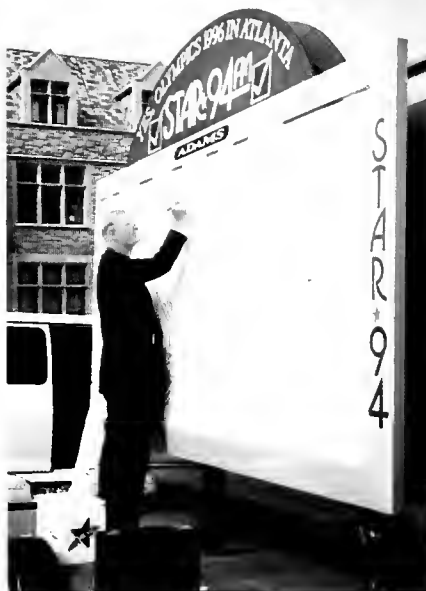 OLYMPICS 1996 IN ATLANTA
STAR★94fm
ADAMS
STAR★94